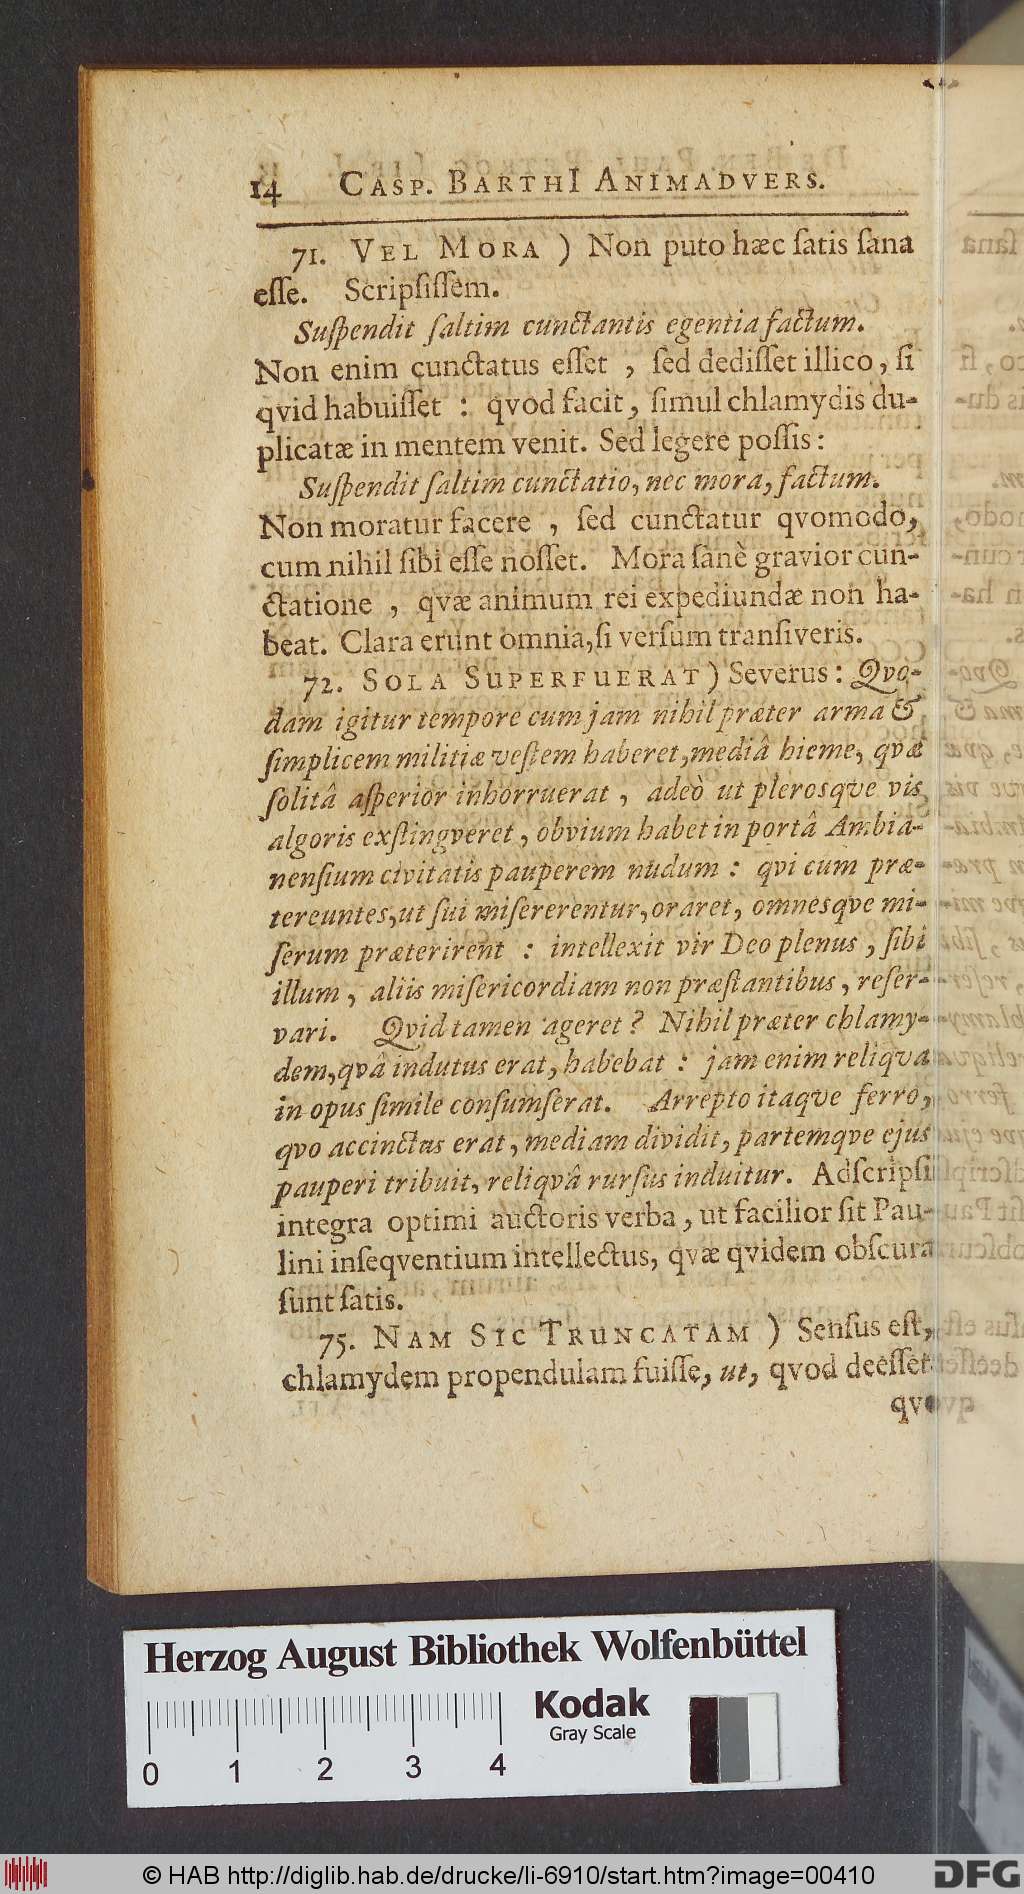 14 CASP. BARTHI ANIMADVERS.
71. VEL MORA ) Non puto hæc ſatis ſana
eſſe. Scripſiſſem.
Suſpendit ſaltim cunctantis egentia factum.
Non enim cunctatus eſſet , ſed dediſſet illico, ſi
qvid habuiſſet : qvod facit, ſimul chlamydis du-
plicatæ in mentem venit. Sed legere poſſis :
Suſpendit ſaltim cunctatio, nec mora, factum.
Non moratur facere , ſed cunctatur qvomodo,
cum nihil ſibi eſſe noſſet. Mora ſanè gravior cun-
ctatione , qvæ animum rei expediundæ non ha-
beat. Clara erunt omnia, ſi verſum tranſiveris.
72. SOLA SUPERFUERAT) Severus : Qvo-
dam igitur tempore cum jam nihil præter arma &
ſimplicem militiæ veſtem haberet, mediâ hieme, qvæ
ſolitâ aſperior inhorruerat , adeò ut plerosqve vis
algoris exſtingveret, obvium habet in portâ Ambia-
nenſium civitatis pauperem nudum : qvi cum præ-
tereuntes, ut ſui miſererentur, oraret, omnesqve mi-
ſerum præterirent : intellexit vir Deo plenus, ſibi
illum, aliis miſericordiam non præſtantibus, reſer-
vari. Qvid tamen ageret ? Nihil præter chlamy-
dem, qvâ indutus erat, habebat : jam enim reliqva
in opus ſimile conſumſerat. Arrepto itaqve ferro,
qvo accinctus erat, mediam dividit, partemqve ejus
pauperi tribuit, reliqvâ rurſus induitur. Adſcripſi
integra optimi auctoris verba, ut facilior ſit Pau-
lini inſeqventium intellectus, qvæ qvidem obſcura
ſunt ſatis.
75. NAM SIC TRUNCATAM ) Senſus eſt,
chlamydem propendulam fuiſſe, ut, qvod deeſſet
qvo
Herzog August Bibliothek Wolfenbüttel
Kodak
Gray Scale
0 1 2 3 4
© HAB http://diglib.hab.de/drucke/li-6910/start.htm?image=00410
DFG